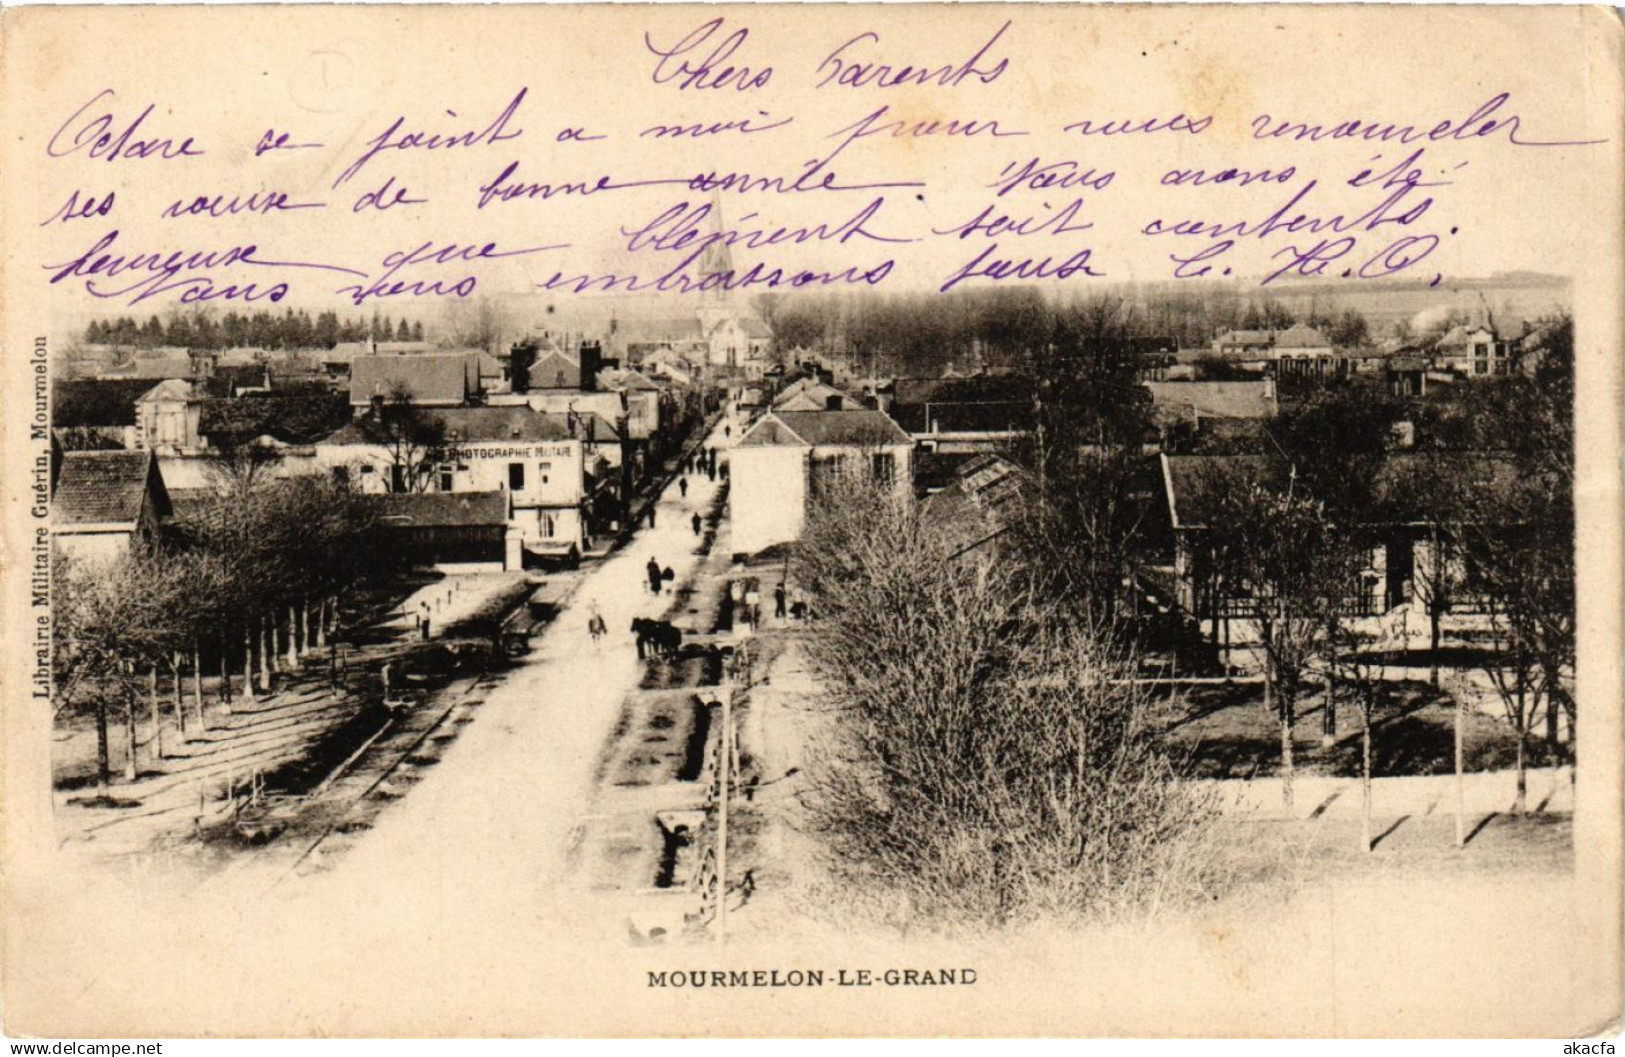 Chers Parents
Octave se joint a moi pour vous renouveler
ses voeux de bonne année Nous avons été
heureuse que Clément soit contents.
Nous vous embrassons tous C. H. O,
Librairie Militaire Guérin, Mourmelon
PHOTOGRAPHIE MILITAIRE
MOURMELON-LE-GRAND
akacfa